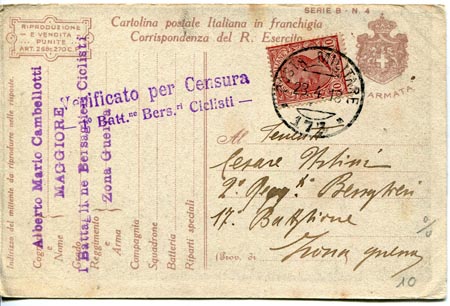 SERIE B - N. 4
RIPRODUZIONE
E VENDITA
PUNITE
ART. 269:270 C.P.
Cartolina postale Italiana in franchigia
Corrispondenza del R. Esercito
Verificato per Censura
Batt.ne Bers.ri Ciclisti
POSTA MILITARE
23.4.16
ARMATA
Indirizzo del mittente da riprodurre nelle risposte.
Cognome
Nome
Grado
Reggimento
Arma
Compagnia
Squadrone
Batteria
Riparti speciali
Alberto Mario Cambellotti
MAGGIORE
I Battaglione Bersaglieri Ciclisti
Zona Guerra
Al Tenente
Cesare
2º Regg. Bersaglieri
17º Battaglione
(Prov. di
Zona guerra
10